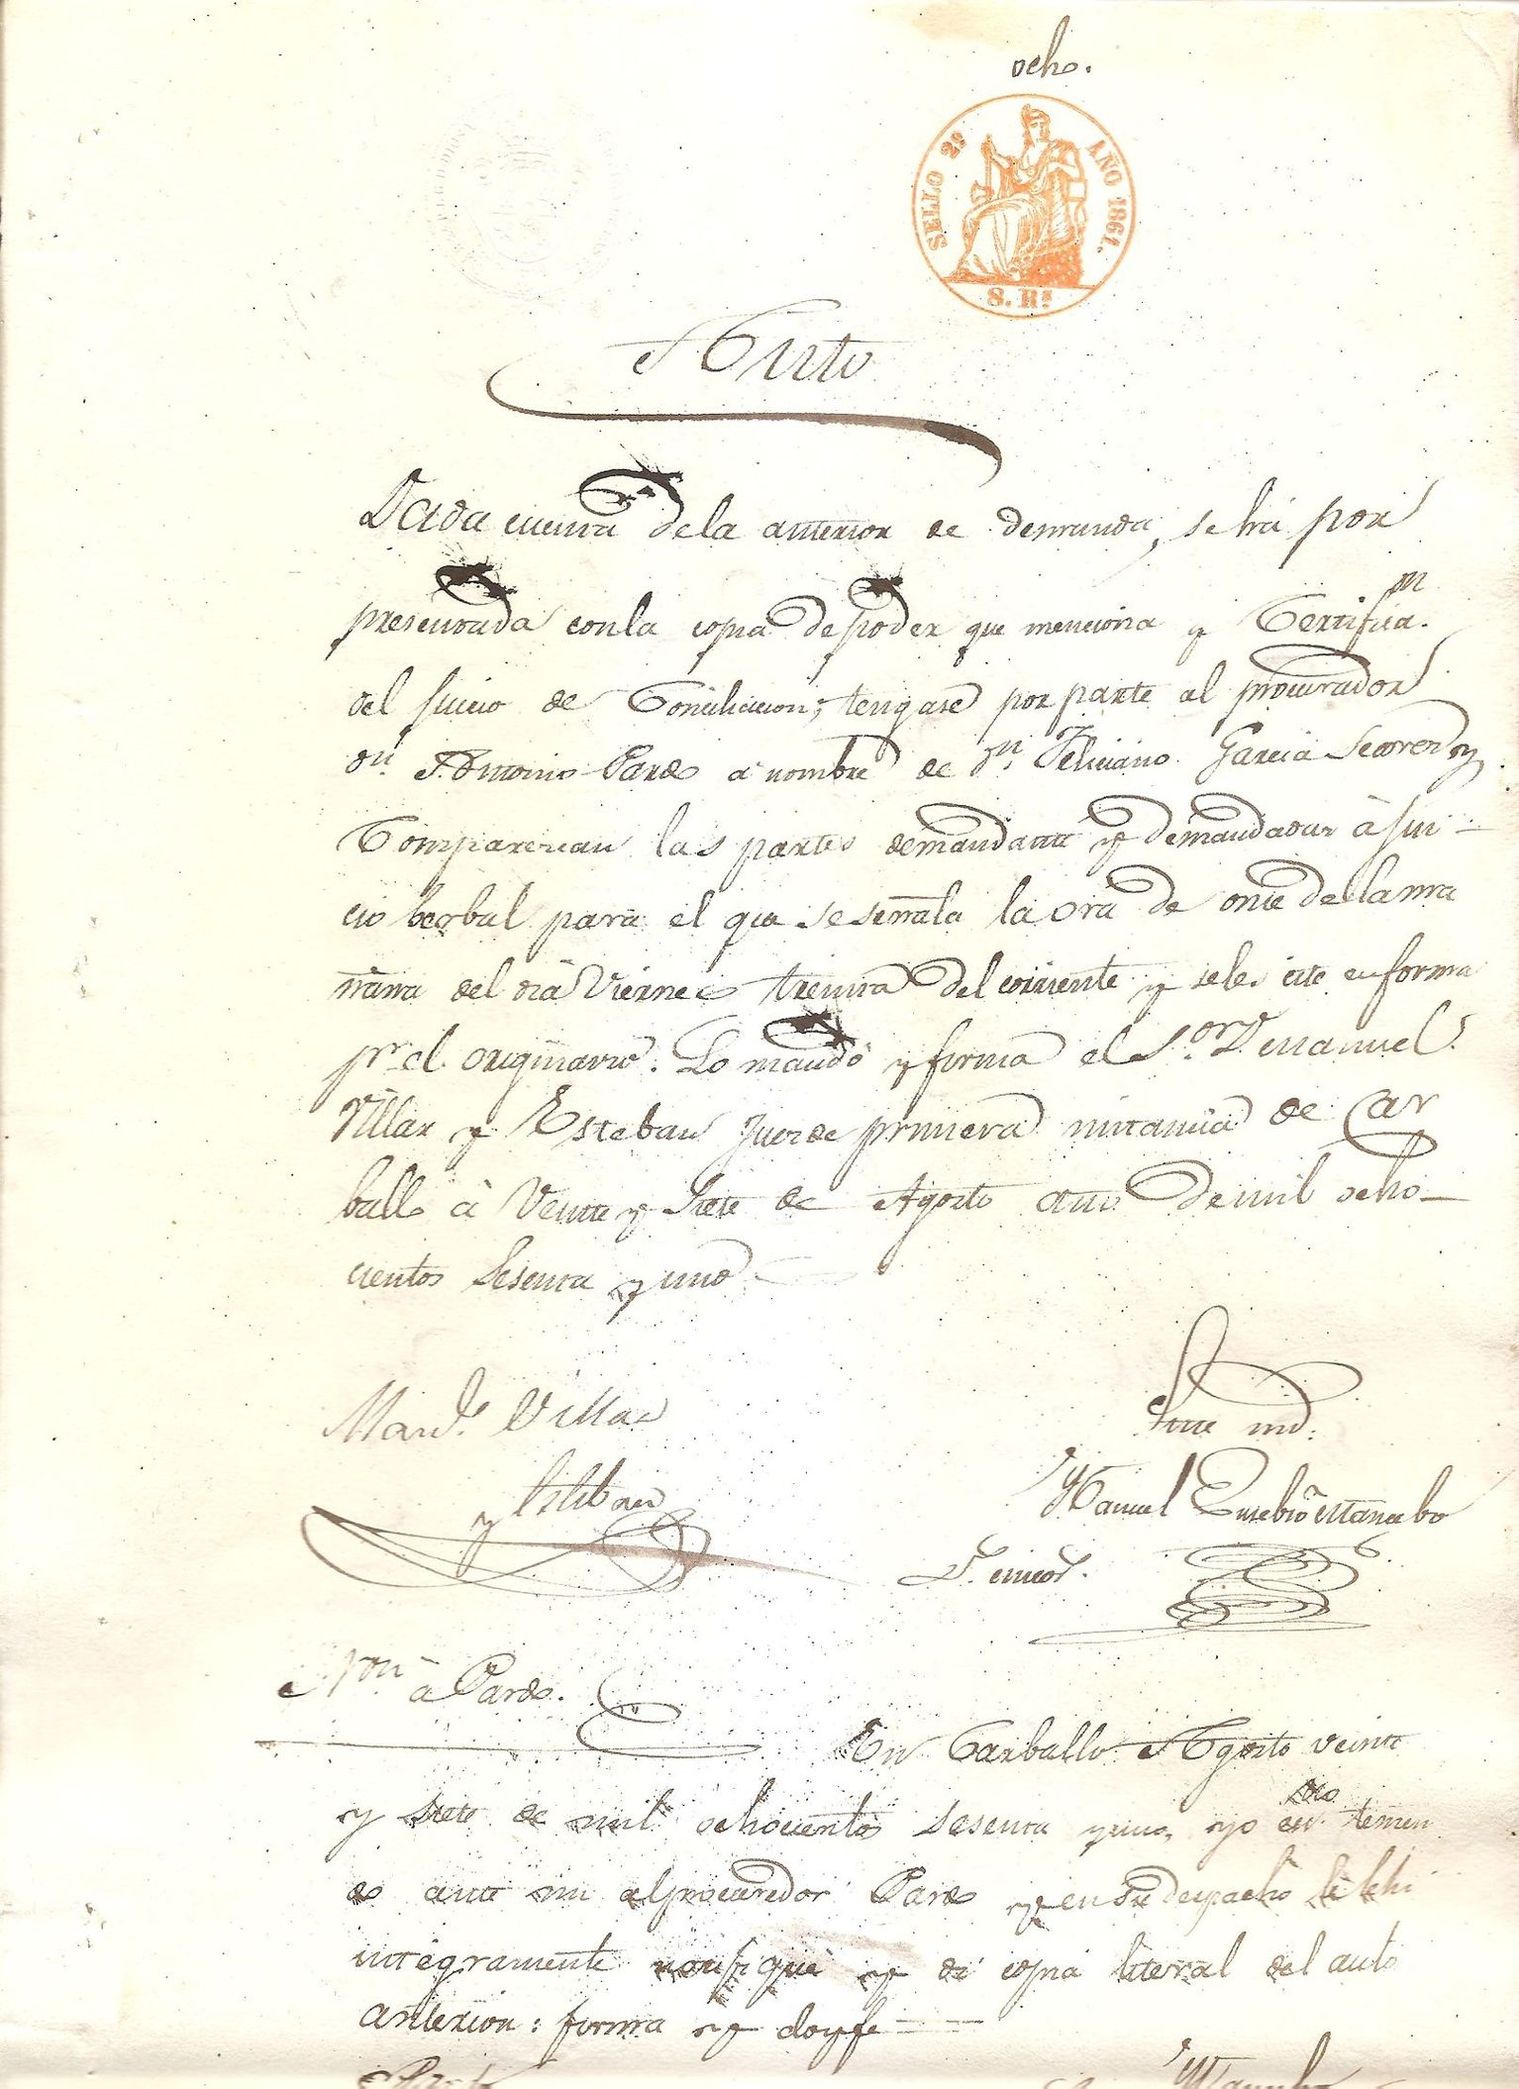 ocho.
SELLO 2º AÑO 1861.
8. Rs
Auto
Dada cuenta dela anterior de demanda, se há por
presentada conla copia de poder que menciona y Certificn.
del juicio de Conciliacion; tengase por parte al procurador
Dn. Antonio Pardo a nombre de Dn. Feliciano Garcia
Comparezcan las partes demandante y demandadas à jui-
cio berbal para el que se señala la ora de once dela ma
ñana del dia Viernes treinta del corriente y seles cite en forma
pr. el originario. Lo mandó y firma el Sor. D. Manuel
Villar y Esteban Juez de primera instancia de Car
ballo à Veinte y Siete de Agosto año de mil ocho-
cientos Sesenta y uno
Manl. Villar
y Esteban
Ante mi.
Manuel Eusebio Mancebo
Non. a Pardo.
En Carballo Agosto veinte
y siete de mil ochocientos sesenta y uno, yo esno. tenien
do ante mi al procurador Pardo y en su despacho le lehi
integramente notifiqué y di copia literal del auto
anterior: firma y doyfe
Pardo
Mancebo